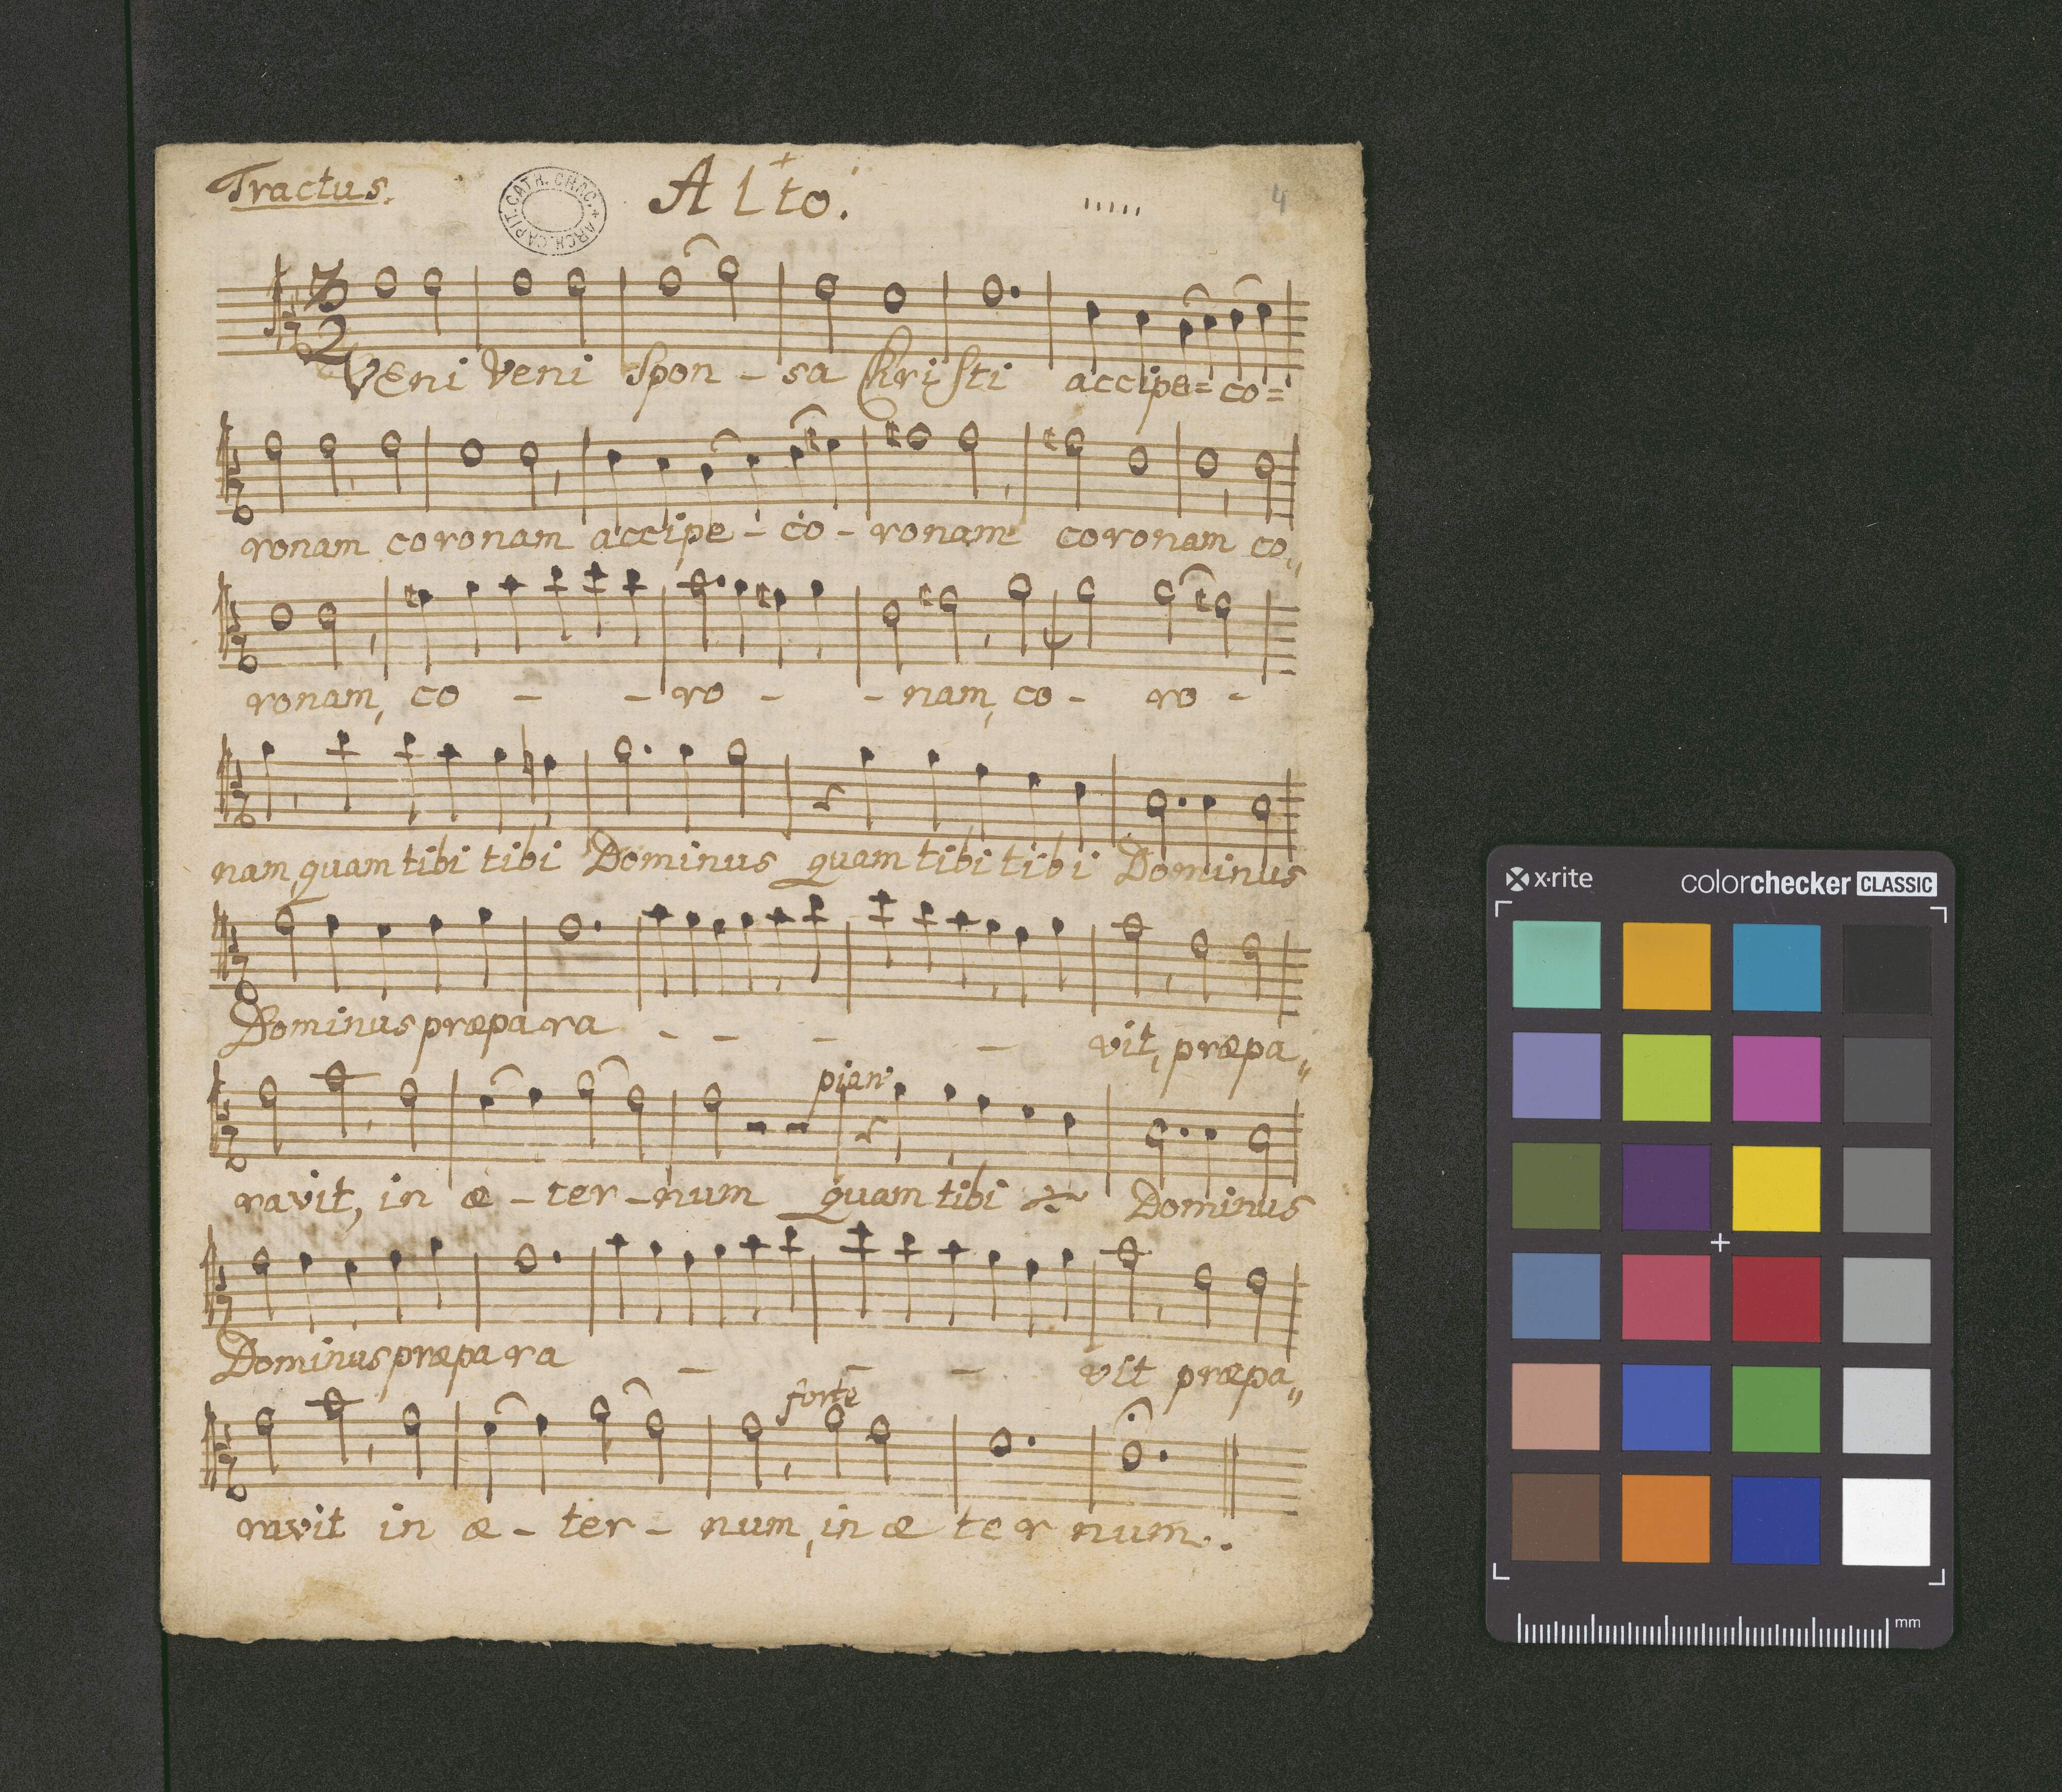 Tractus. Alto. 4
ARCH. CAPIT. CATH. CRAC. +
3
2
Veni Veni Spon - sa Christi accipe = co =
ronam coronam accipe - co - ronam coronam co„
ronam, co - - ro - - nam, co - ro -
nam, quam tibi tibi Dominus quam tibi tibi Dominus
Dominus præpara - - - - vit, præpa„
pian:
ravit, in æ - ter - num quam tibi Dominus
Dominus præpara - - - vit præpa„
forte
ravit in æ - ter - num, in æ ter num.
x-rite
colorchecker CLASSIC
mm